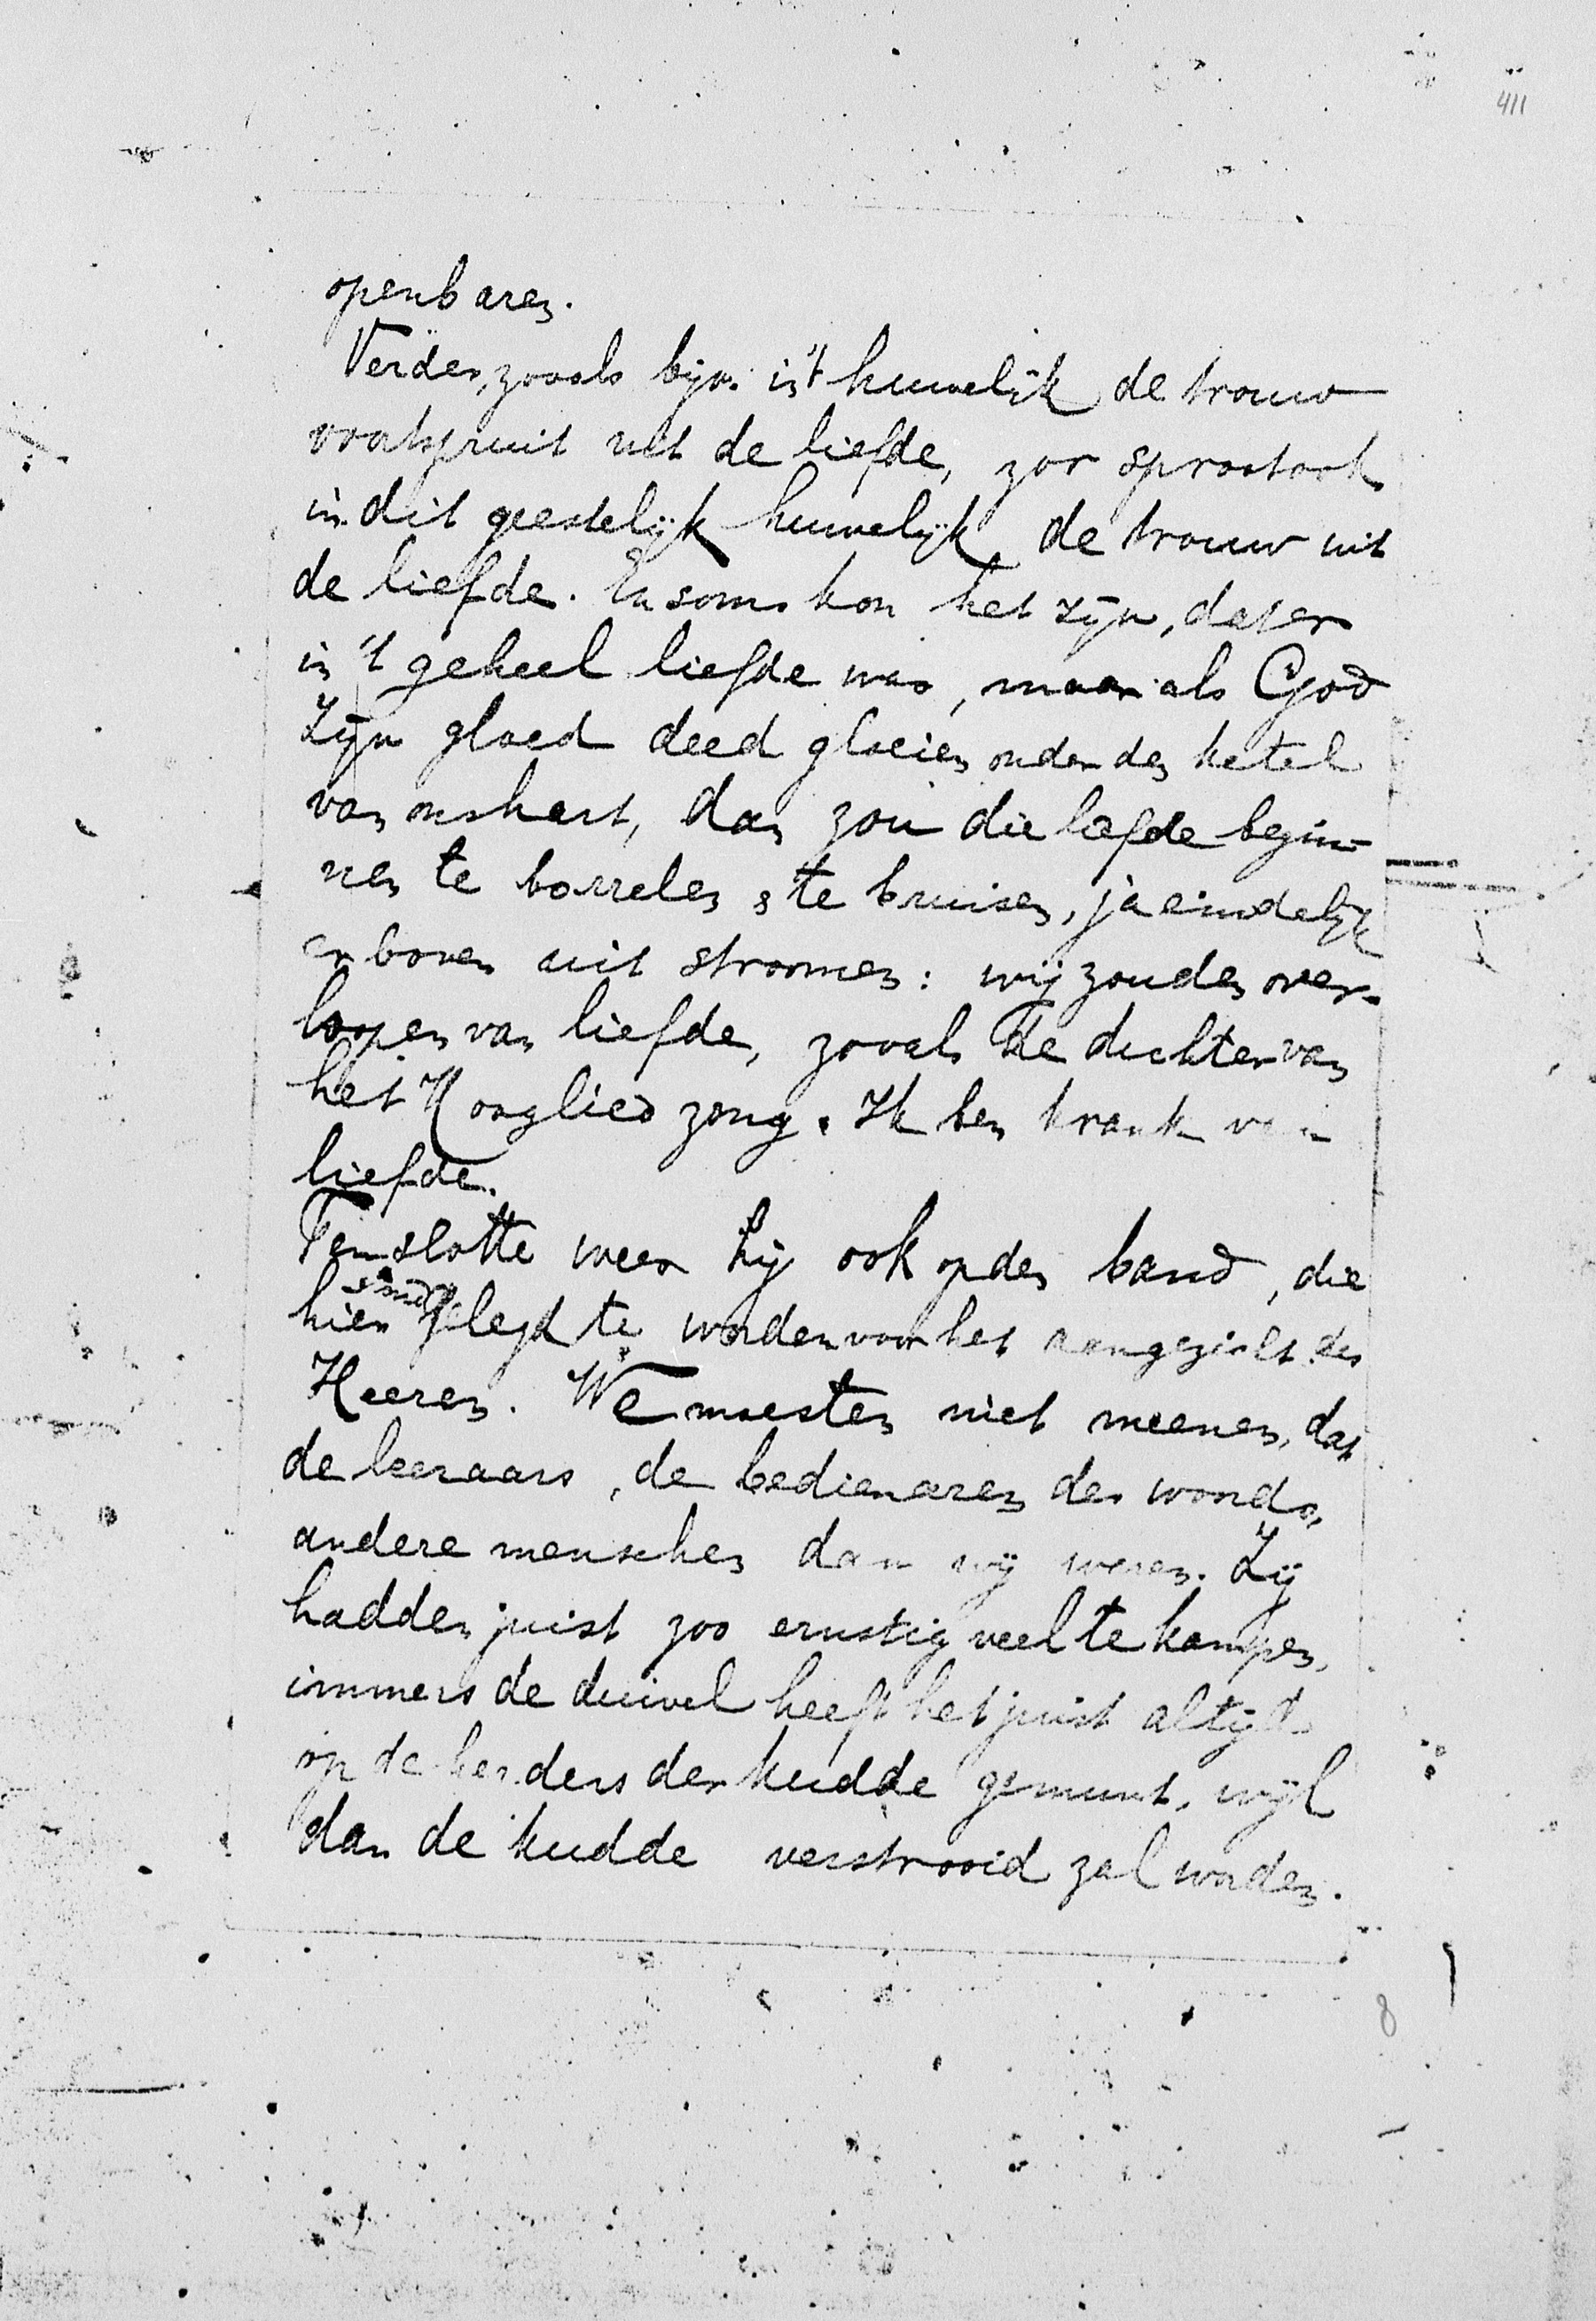 411
openbaren.
Verder, zooals bijv. in 't huwelijk de trouw
voortspruit uit de liefde, zoo sproot ook
in dit geestelijk huwelijk de trouw uit
de liefde. En soms kon het zijn, dat er
in 't geheel liefde was, maar als God
Zijn gloed deed gloeien onder den ketel
van ons hart, dan zou die liefde begin-
nen te borrelen & te bruisen, ja eindelijk
er boven uit stroomen: wij zouden over-
loopen van liefde, zooals de dichter van
het Hooglied zong. Ik ben krank van
liefde.
Tenslotte wees hij ook op den band, die
hier gelegd te worden voor het aangezicht des
Heeren. We moesten niet meenen, dat
de leeraars, de bedienaren des woords,
andere menschen dan wij waren. Zij
hadden juist zoo ernstig veel te kampen,
immers de duivel heeft het juist altijd
op de herders der kudde gemunt, wijl
dan de kudde verstrooid zal worden.
8